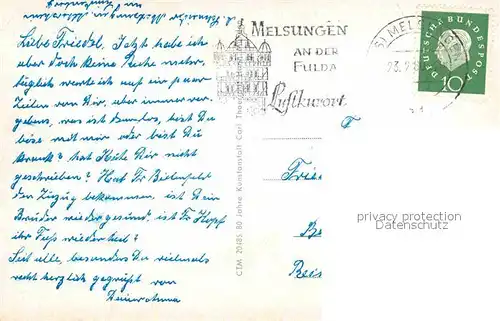 Liebe Friedel, Jetzt habe ich
aber doch keine Ruhe mehr,
täglich warte ich auf ein paar
Zeilen von Dir, aber immer ver-
gebens, was ist denn los, bist Du
böse mit mir oder bist Du
krank? hat Dir nicht
geschrieben? Hat Fr. Bielenfeld
den Zuzug bekommen, ist Dein
Bruder wieder gesund, ist Fr. Hopf
ihr Fuß wieder heil?
Seid alle, besonders Du vielmals
recht herzlich gegrüßt von
CTM 20185. 80 Jahre Kunstanstalt Carl
MELSUNGEN
AN DER
FULDA
Luftkurort
MELS
23.
DEUTSCHE BUNDESPOST
10
F
Frie
privacy protection
watermark
Be
Reis